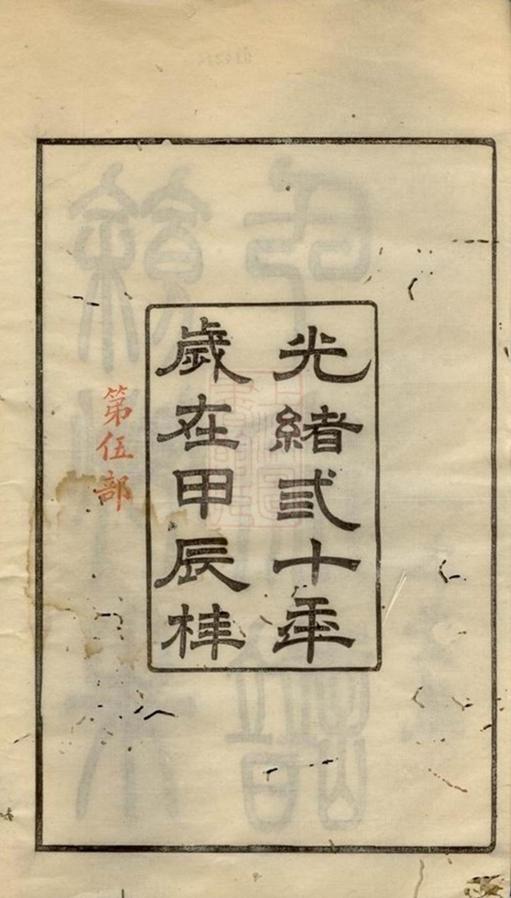 光緒弎十年
歲在甲辰梓
第伍部